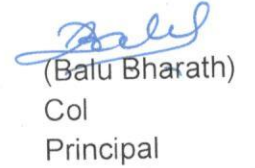 (Balu Bharath)
Col
Principal